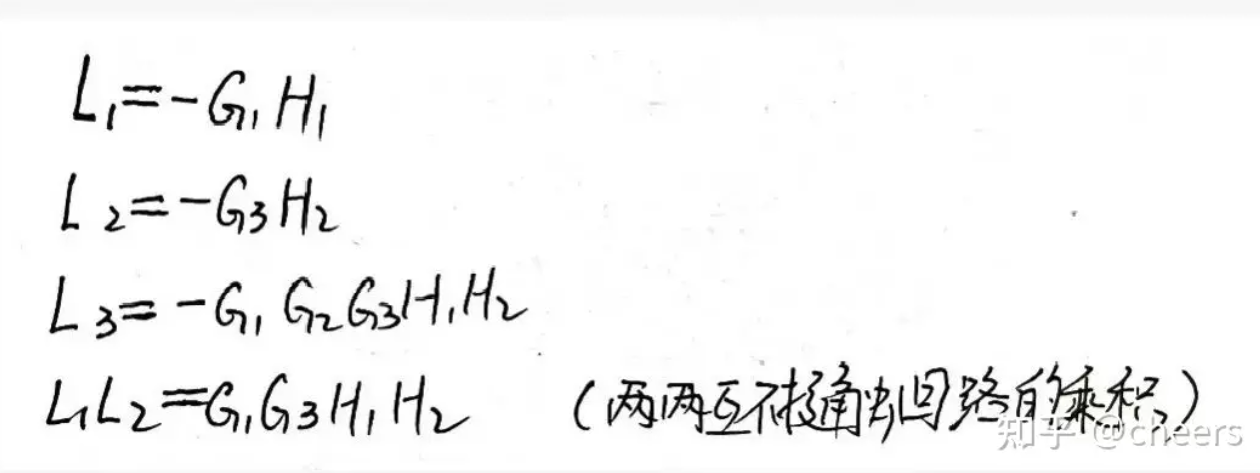 L₁=-G₁H₁
L₂=-G₃H₂
L₃=-G₁G₂G₃H₁H₂
L₁L₂=G₁G₃H₁H₂ (两两互不接触回路的乘积)
知乎 @cheers